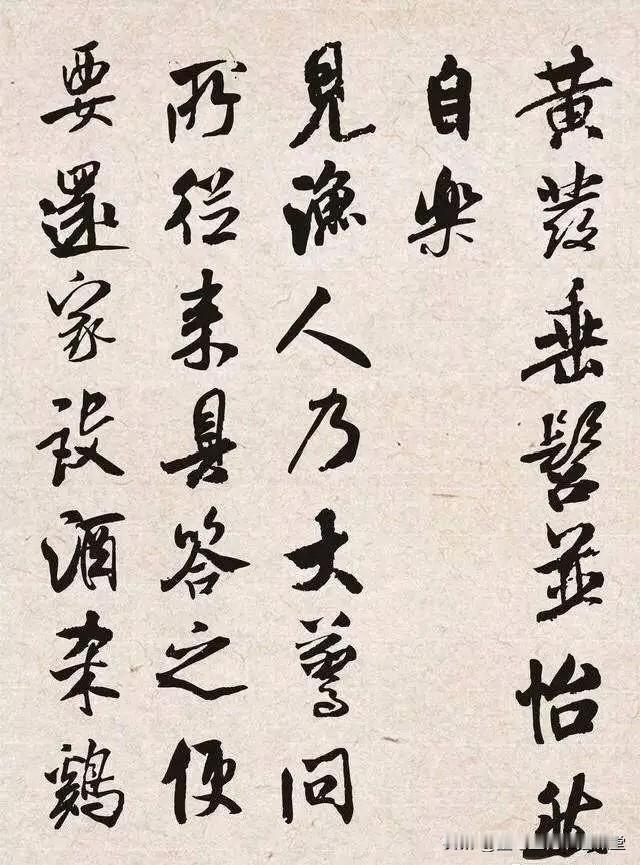 黄發垂髫並怡然
自樂
見漁人乃大驚問
所從来具答之便
要還家設酒杀鷄